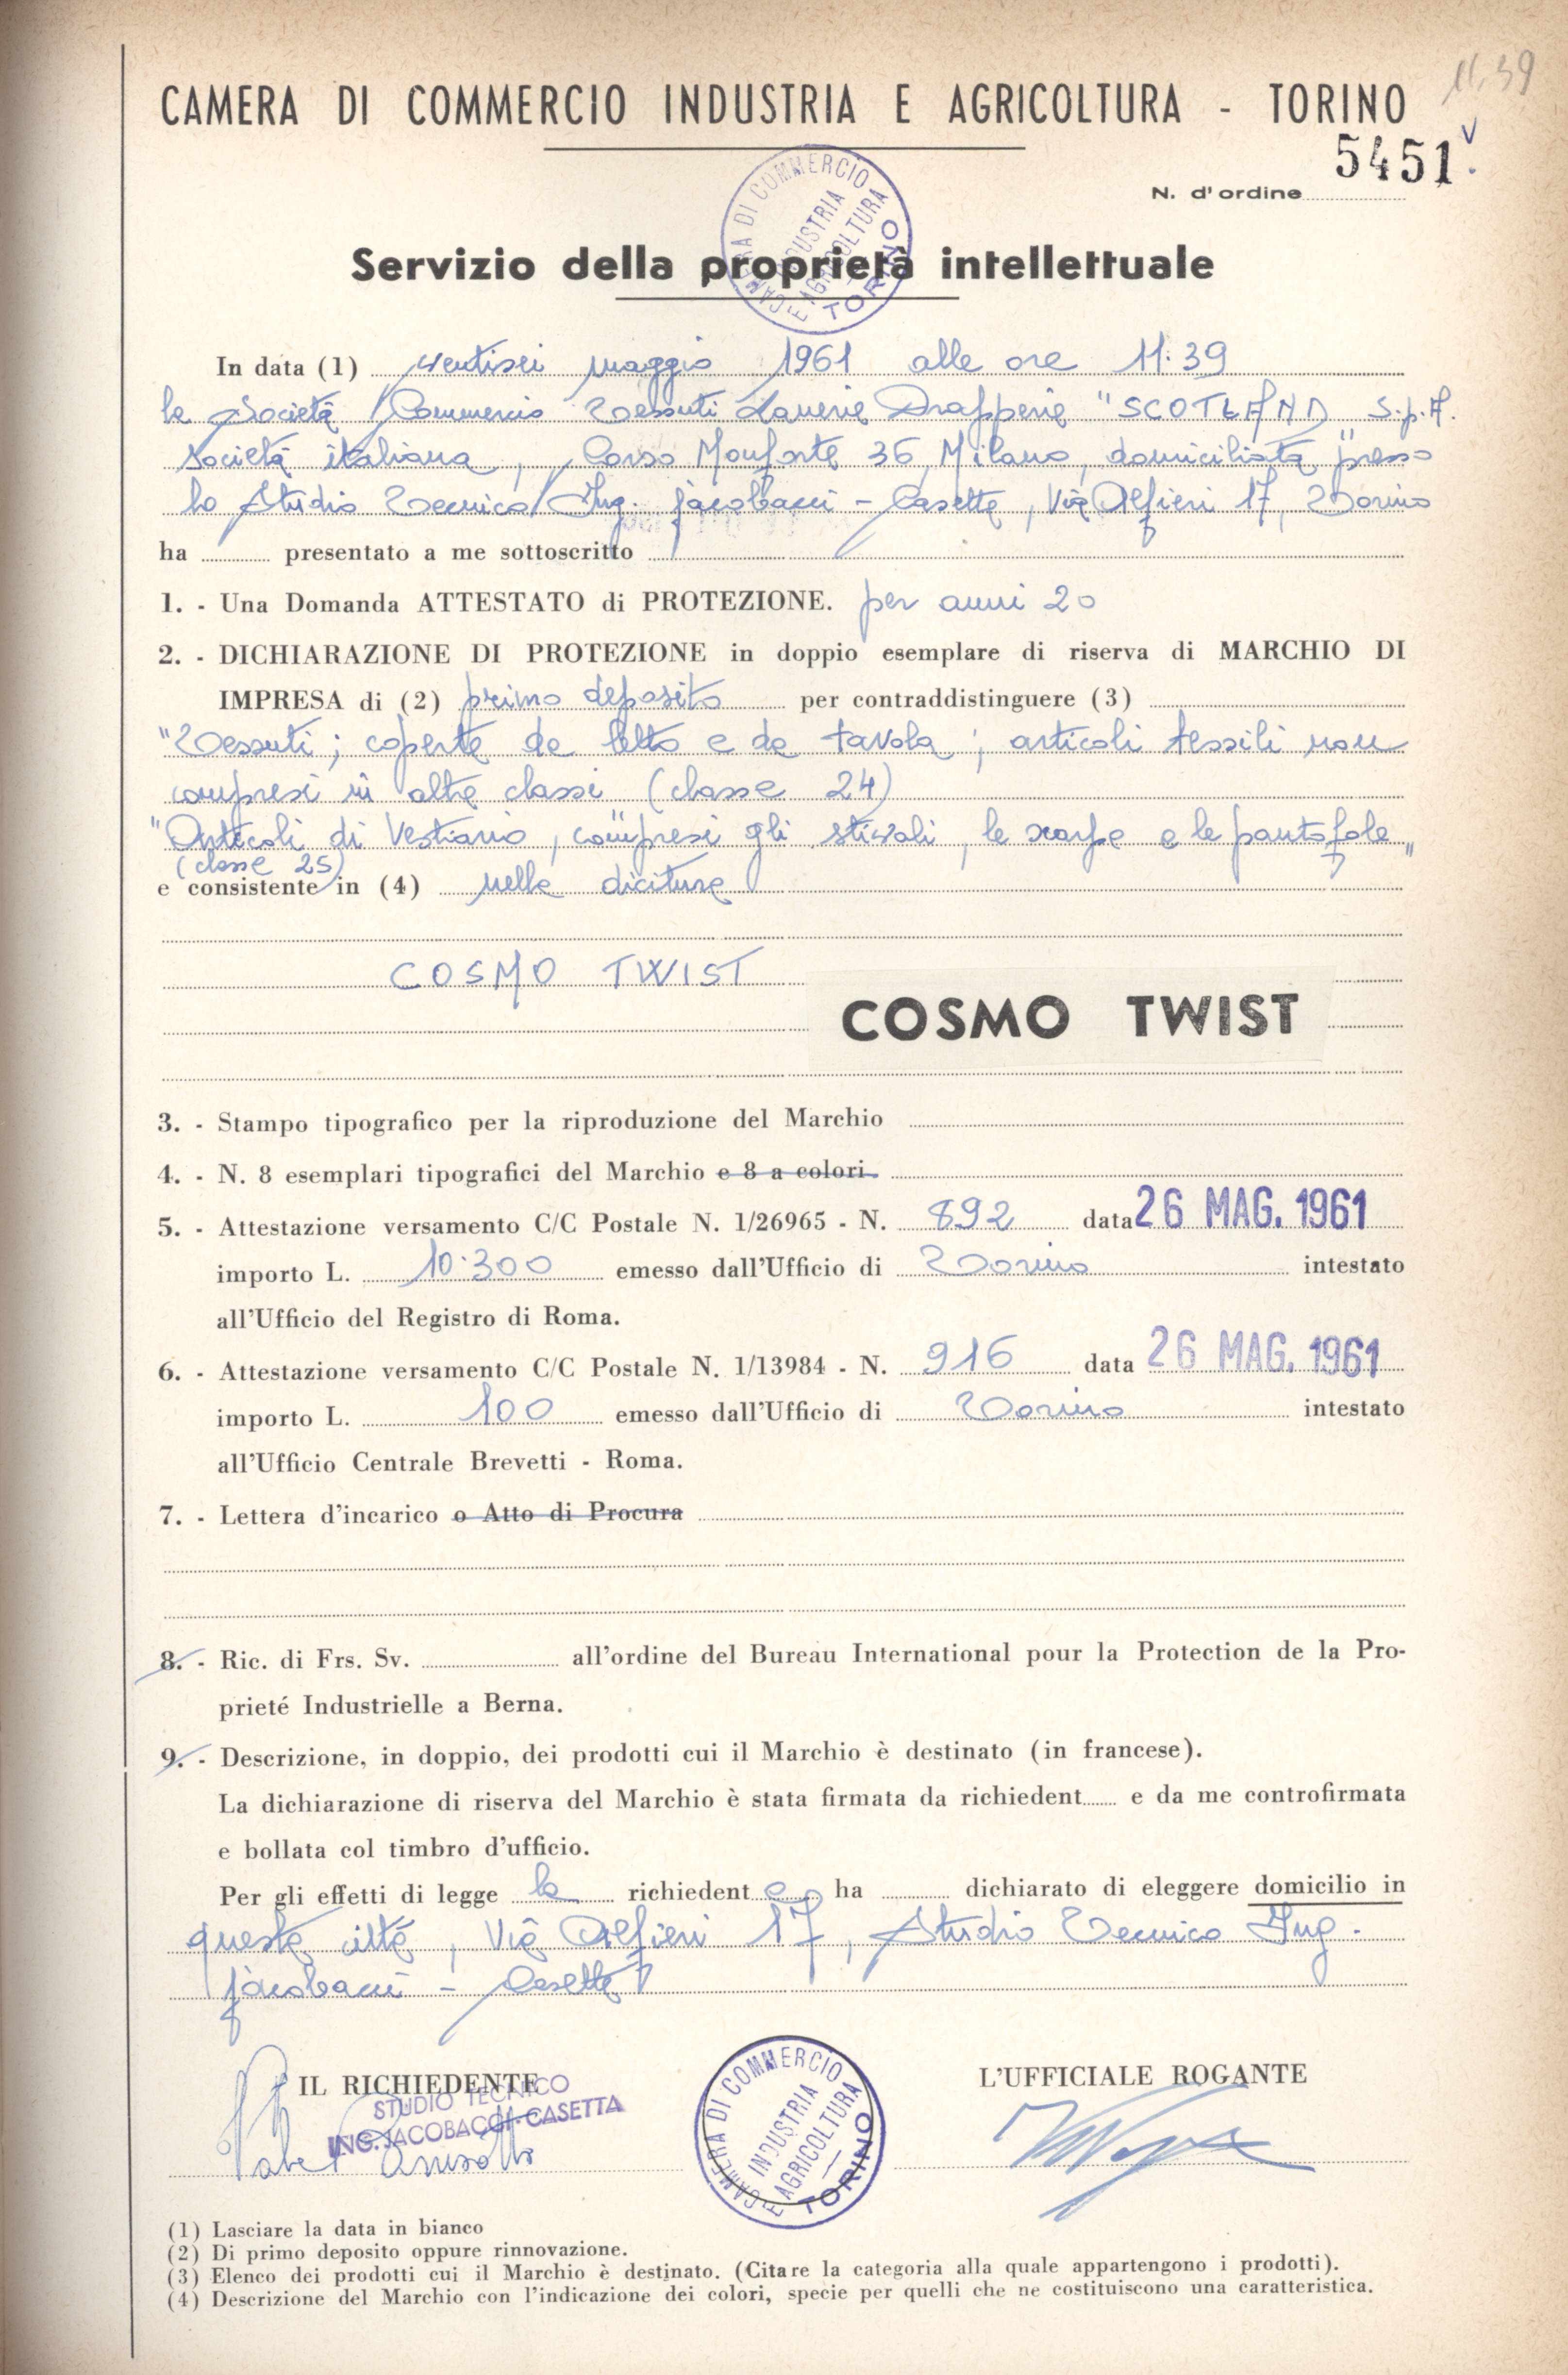 11.39
CAMERA DI COMMERCIO INDUSTRIA E AGRICOLTURA - TORINO
5451
N. d'ordine
CAMERA DI COMMERCIO INDUSTRIA E AGRICOLTURA TORINO
Servizio della proprietà intellettuale
In data (1) ventisei maggio 1961 alle ore 11:39
la Società Commercio Tessuti Lanerie Drapperie "SCOTLAND S.p.A.
società italiana, Corso Monforte 36, Milano, domiciliata presso
lo Studio Tecnico Ing. Jacobacci - Casetta, Via Alfieri 17, Torino
ha presentato a me sottoscritto
1. - Una Domanda ATTESTATO di PROTEZIONE. per anni 20
2. - DICHIARAZIONE DI PROTEZIONE in doppio esemplare di riserva di MARCHIO DI
IMPRESA di (2) primo deposito per contraddistinguere (3)
"Tessuti; coperte da letto e da tavola; articoli tessili non
compresi in altre classi (classe 24)
"Articoli di vestiario, compresi gli stivali, le scarpe e le pantofole"
(classe 25)
e consistente in (4) nelle diciture
COSMO TWIST
COSMO TWIST
3. - Stampo tipografico per la riproduzione del Marchio
4. - N. 8 esemplari tipografici del Marchio e 8 a colori
5. - Attestazione versamento C/C Postale N. 1/26965 - N. 892 data 26 MAG. 1961
importo L. 10.300 emesso dall'Ufficio di Torino intestato
all'Ufficio del Registro di Roma.
6. - Attestazione versamento C/C Postale N. 1/13984 - N. 916 data 26 MAG. 1961
importo L. 100 emesso dall'Ufficio di Torino intestato
all'Ufficio Centrale Brevetti - Roma.
7. - Lettera d'incarico o Atto di Procura
8. - Ric. di Frs. Sv. all'ordine del Bureau International pour la Protection de la Pro-
prieté Industrielle a Berna.
9. - Descrizione, in doppio, dei prodotti cui il Marchio è destinato (in francese).
La dichiarazione di riserva del Marchio è stata firmata da richiedent e da me controfirmata
e bollata col timbro d'ufficio.
Per gli effetti di legge la richiedent e ha dichiarato di eleggere domicilio in
questa città, Via Alfieri 17, Studio Tecnico Ing.
Jacobacci - Casetta
IL RICHIEDENTE
STUDIO TECNICO
ING. JACOBACCI-CASETTA
CAMERA DI COMMERCIO INDUSTRIA E AGRICOLTURA TORINO
L'UFFICIALE ROGANTE
(1) Lasciare la data in bianco
(2) Di primo deposito oppure rinnovazione.
(3) Elenco dei prodotti cui il Marchio è destinato. (Citare la categoria alla quale appartengono i prodotti).
(4) Descrizione del Marchio con l'indicazione dei colori, specie per quelli che ne costituiscono una caratteristica.